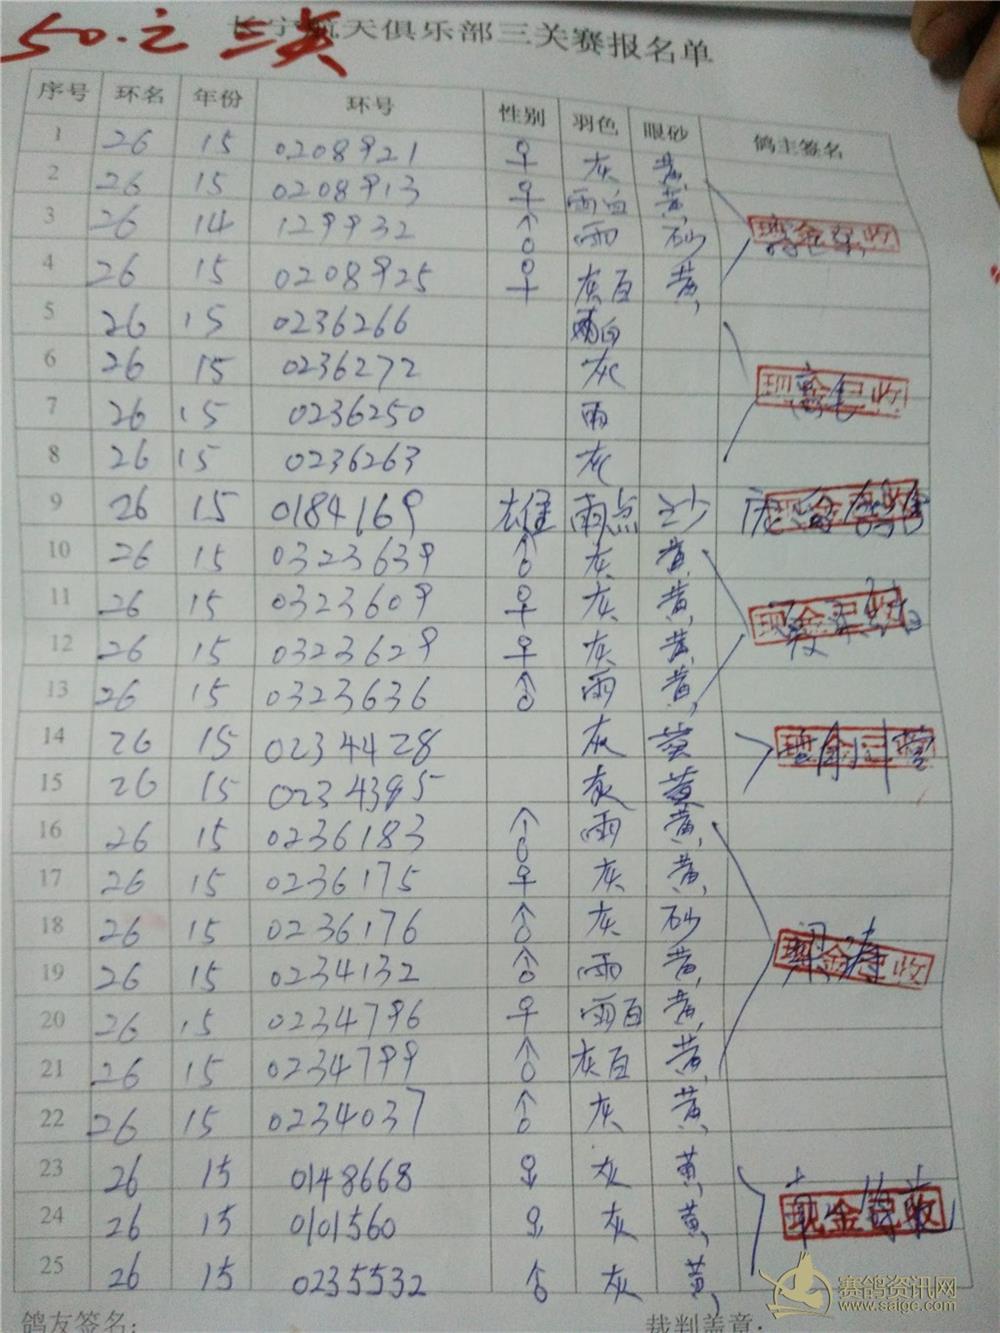 50.之 三关
长宁航天俱乐部三关赛报名单
序号 环名 年份 环号 性别 羽色 眼砂 鸽主签名
1 26 15 0208921 ♀ 灰 黄
2 26 15 0208913 ♀ 雨白 黄
3 26 14 129932 ♂ 雨 砂
现金已收
4 26 15 0208925 ♀ 灰白 黄
5 26 15 0236266 雨白
6 26 15 0236272 灰
现金已收
7 26 15 0236250 雨
8 26 15 0236263 灰
9 26 15 0184169 雄 雨点 沙
10 26 15 0323639 ♂ 灰 黄
11 26 15 0323609 ♀ 灰 黄
现金已收
12 26 15 0323629 ♀ 灰 黄
13 26 15 0323636 ♂ 雨 黄
14 26 15 0234428 灰 黄
15 26 15 0234395 灰 黄
16 26 15 0236183 ♂ 雨 黄
17 26 15 0236175 ♀ 灰 黄
18 26 15 0236176 ♂ 灰 砂
19 26 15 0234132 ♂ 雨 黄
现金已收
20 26 15 0234796 ♀ 雨白 黄
21 26 15 0234799 ♂ 灰白 黄
22 26 15 0234037 ♂ 灰 黄
23 26 15 0148668 ♀ 灰 黄
24 26 15 0101560 ♀ 灰 黄
现金已收
25 26 15 0235532 ♂ 灰 黄
鸽友签名: 裁判盖章:
赛鸽资讯网
www.saige.com